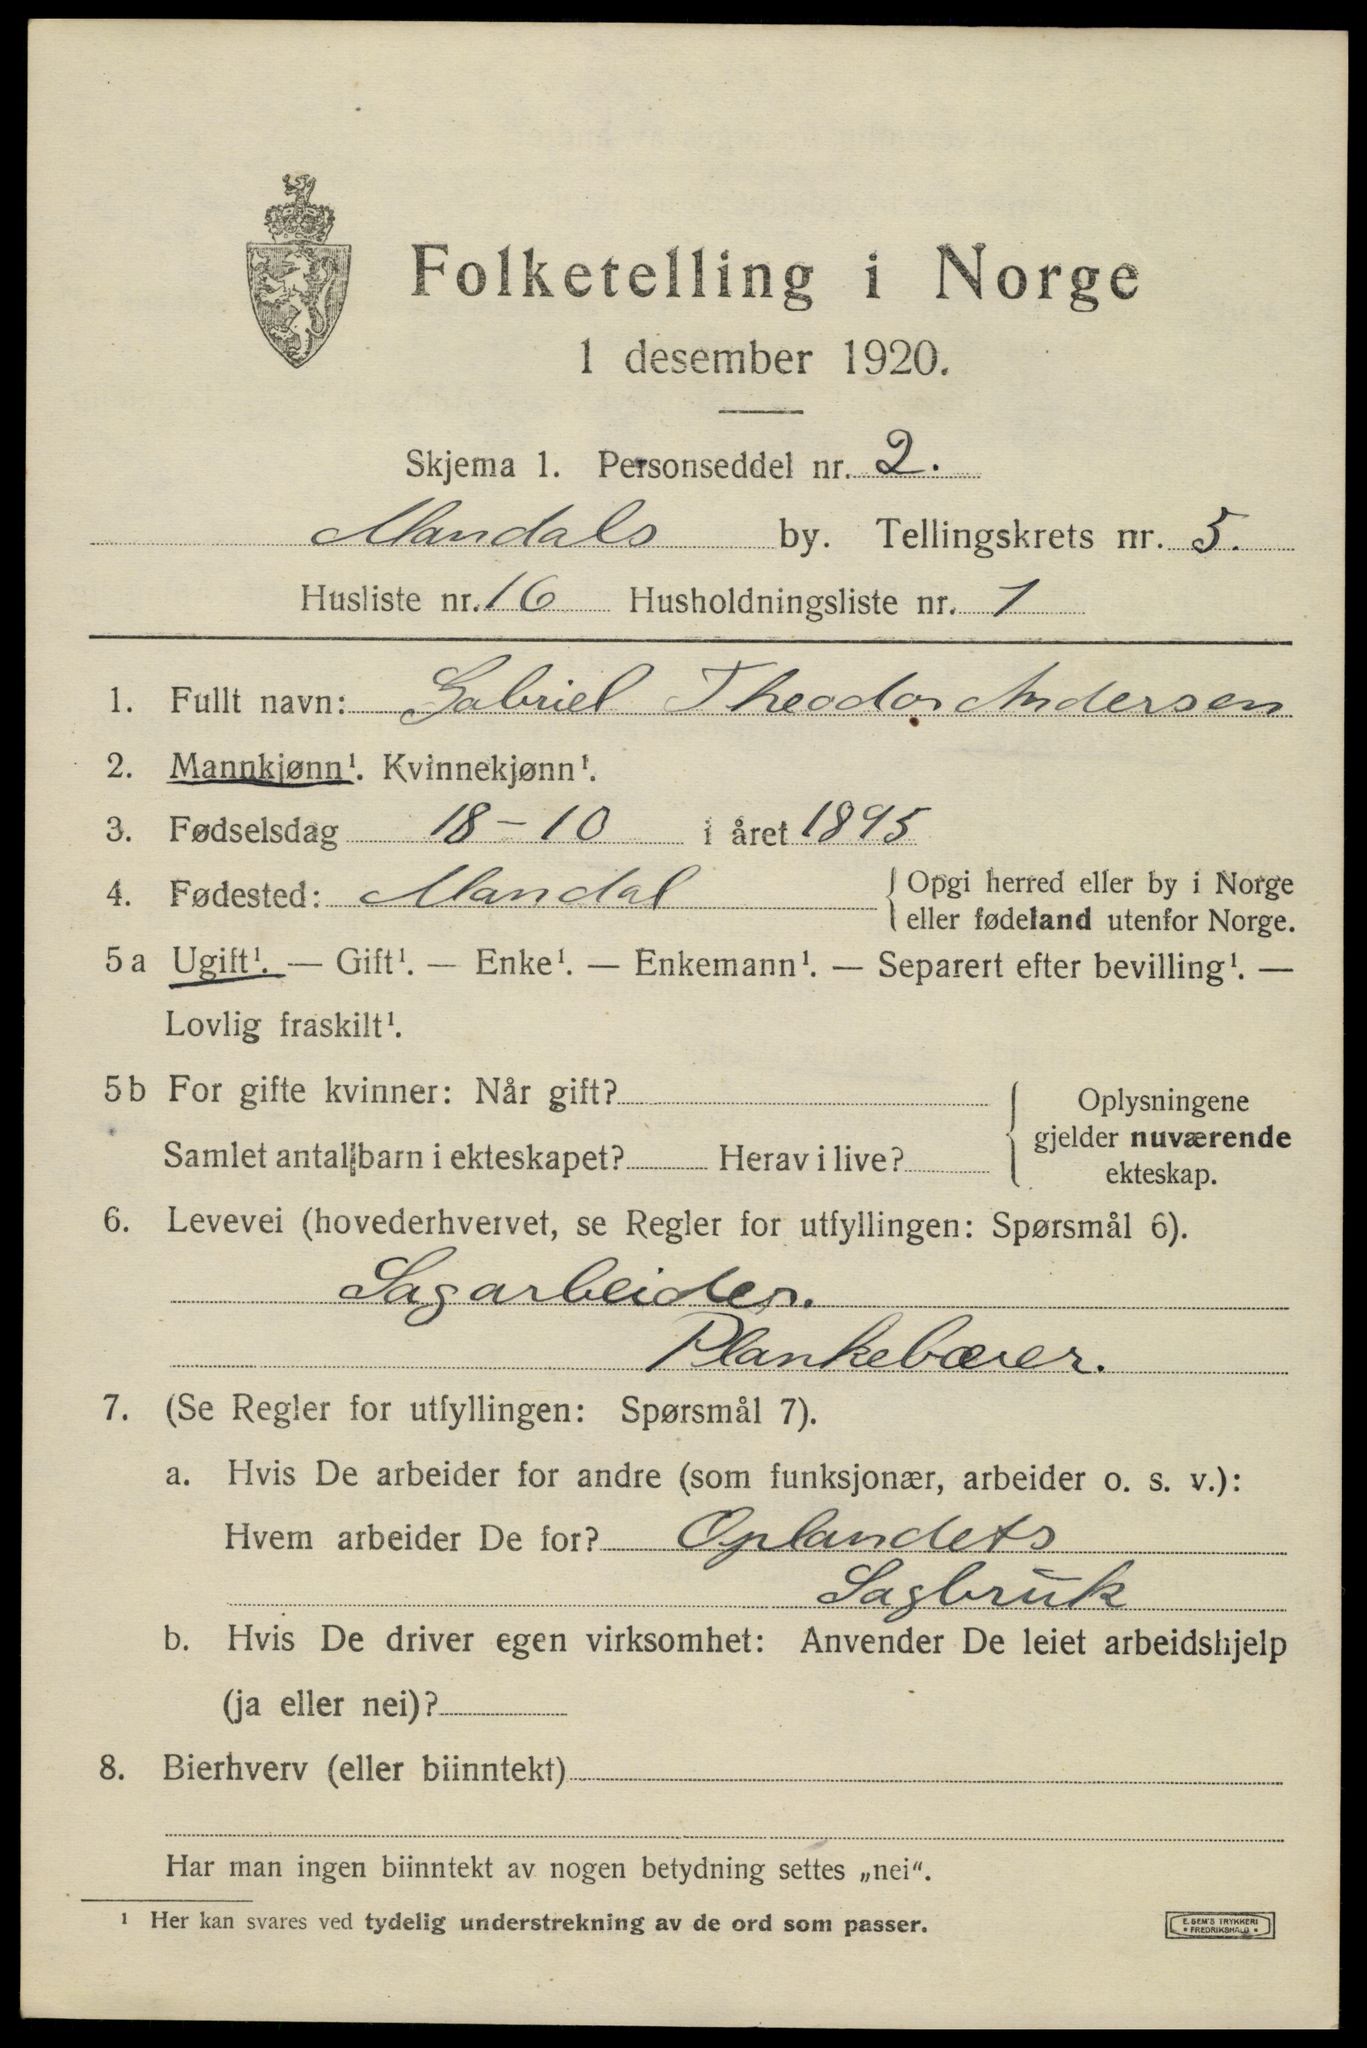 Folketelling i Norge
1 desember 1920.
Skjema 1. Personseddel nr. 2.
Mandals by. Tellingskrets nr. 5.
Husliste nr. 16 Husholdningsliste nr. 1
1. Fullt navn: Gabriel Theodor Andersen
2. Mannkjønn¹. Kvinnekjønn¹.
3. Fødselsdag 18-10 i året 1895
4. Fødested: Mandal { Opgi herred eller by i Norge
eller fødeland utenfor Norge.
5 a Ugift¹. — Gift¹. — Enke¹. — Enkemann¹. — Separert efter bevilling¹. —
Lovlig fraskilt¹.
5 b For gifte kvinner: Når gift?
Samlet antal barn i ekteskapet? Herav i live?
{ Oplysningene
gjelder nuværende
ekteskap.
6. Levevei (hovederhvervet, se Regler for utfyllingen: Spørsmål 6).
Sagarbeider.
Plankebærer.
7. (Se Regler for utfyllingen: Spørsmål 7).
a. Hvis De arbeider for andre (som funksjonær, arbeider o. s. v.):
Hvem arbeider De for? Oplandets
Sagbruk
b. Hvis De driver egen virksomhet: Anvender De leiet arbeidshjelp
(ja eller nei)?
8. Bierhverv (eller biinntekt)
Har man ingen biinntekt av nogen betydning settes „nei“.
¹ Her kan svares ved tydelig understrekning av de ord som passer.
E. SEM'S TRYKKERI
• FREDRIKSHALD •